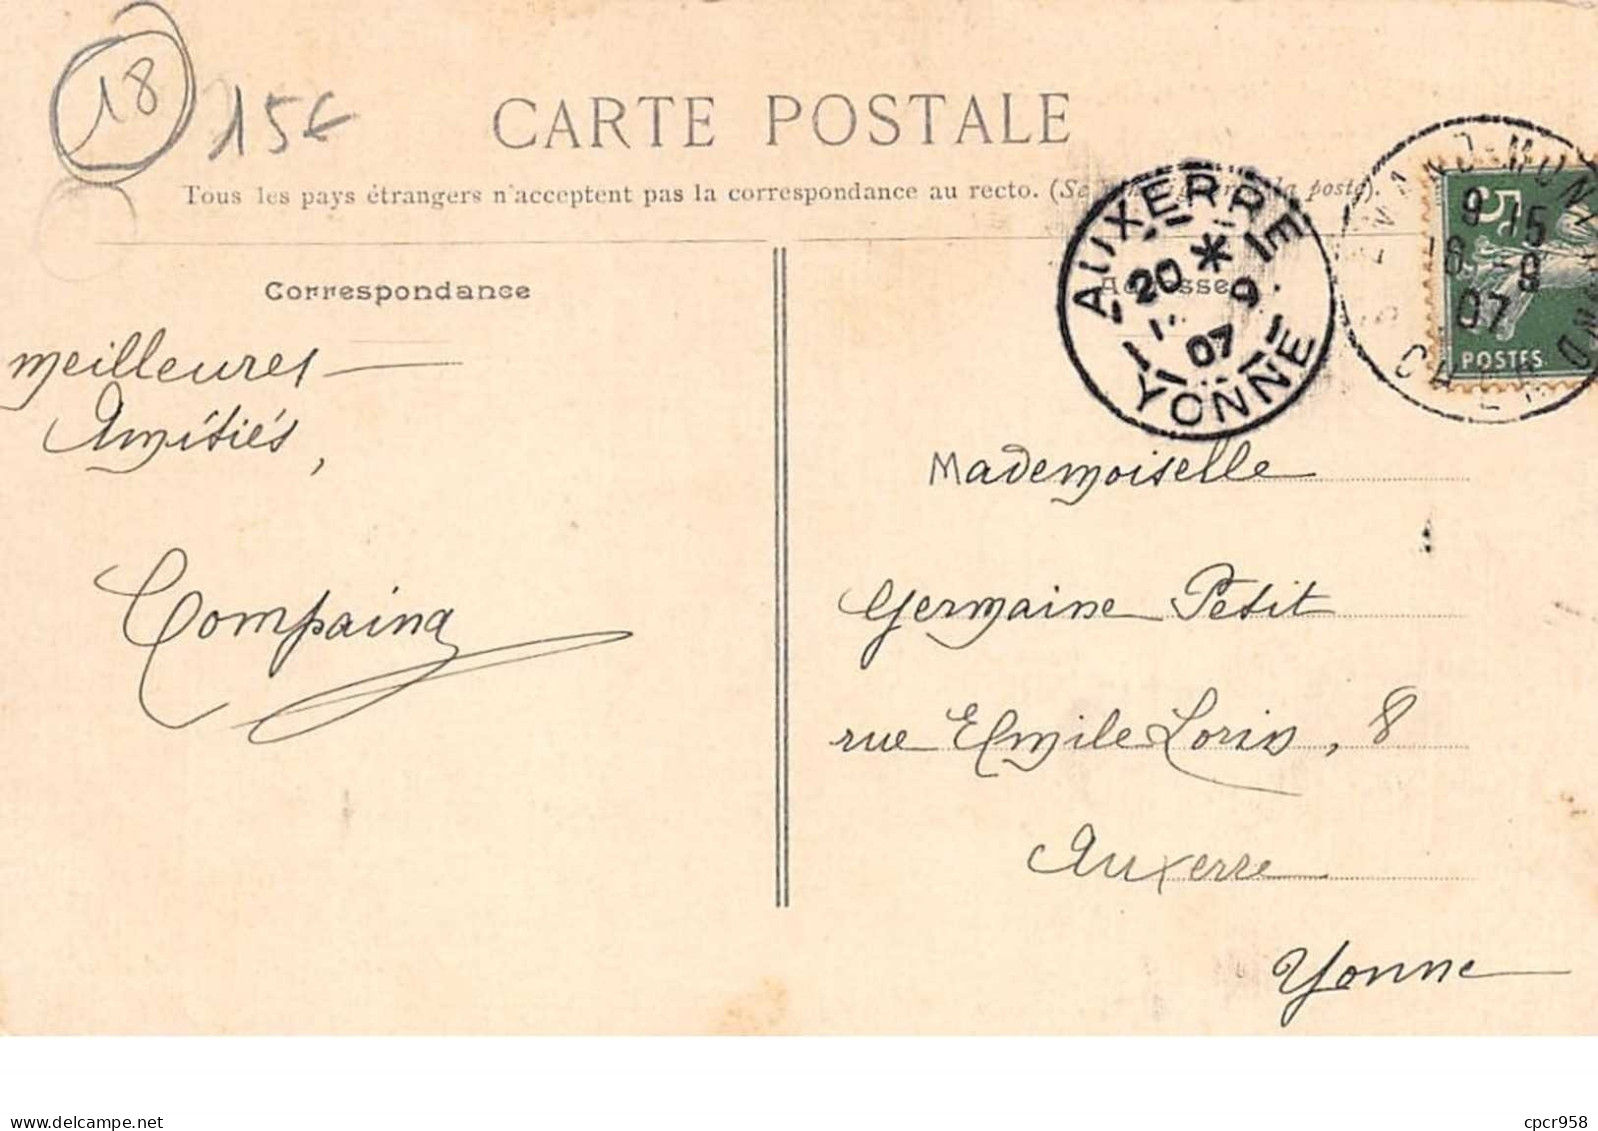 18
15€
CARTE POSTALE
Tous les pays étrangers n'acceptent pas la correspondance au recto. (Se la poste).
AUXERRE
20 * 1
9
07
YONNE
9 15
18 - 9
07
5
POSTES
Correspondance
Adresse
meilleures
Amitiés,
Compaing
Mademoiselle
Germaine Petit
rue Emile Loris, 8
Auxerre
Yonne
delcampe.net
cpcr958